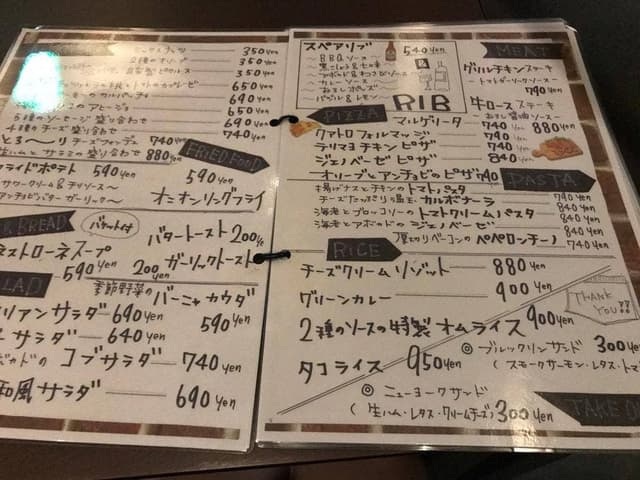 350yen
2種のオリーブ 350yen
自家製ピクルス 350yen
トマトのカプレーゼ 650yen
カルパッチョ 690yen
のアヒージョ 650yen
5種のソーセージ盛り合わせ 690yen
4種のチーズ盛り合わせ 740yen
とろ〜りチーズフォンデュ 740yen
生ハムとサラミの盛り合わせ 880yen
FRIED FOOD
フライドポテト 590yen
〜サワークリーム&チリソース〜
〜アンチョビバターガーリック〜
オニオンリングフライ 590yen
& BREAD
バゲット付
ネストローネスープ 590yen
バタートースト 200yen
ガーリックトースト 200yen
LAD
季節野菜のバーニャカウダ 590yen
リアンサラダ 690yen
サラダ 640yen
ボカドのコブサラダ 740yen
和風サラダ 690yen
スペアリブ 540yen
〜BBQソース〜
〜カレーソース〜
〜バジル&レモン〜
RIB
MEAT
グリルチキンステーキ
〜トマトガーリックソース〜
790yen
牛ロースステーキ
〜おろし醤油ソース〜
880yen
PIZZA
マルゲリータ 740yen
クアトロフォルマッジ 790yen
テリマヨチキンピザ 740yen
ジェノベーゼピザ 840yen
オリーブとアンチョビのピザ 740yen
PASTA
揚げナスとチキンのトマトパスタ 790yen
チーズたっぷり温玉カルボナーラ 840yen
海老とブロッコリーのトマトクリームパスタ 840yen
海老とアボカドのジェノベーゼ 840yen
厚切りベーコンのペペロンチーノ 740yen
RICE
チーズクリームリゾット 880yen
グリーンカレー 900yen
2種のソースの特製オムライス 900yen
タコライス 950yen
THANK YOU!!
◎ブルックリンサンド 300yen
(スモークサーモン・レタス・トマ
◎ニューヨークサンド
(生ハム・レタス・クリームチーズ) 300yen
TAKE O